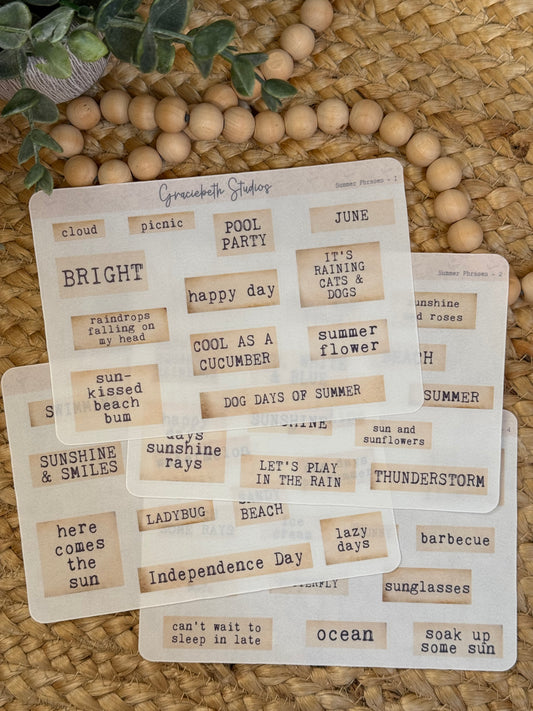 Graciebeth Studios
Summer Phrases - 1
cloud
picnic
POOL
PARTY
JUNE
BRIGHT
happy day
IT'S
RAINING
CATS &
DOGS
raindrops
falling on
my head
COOL AS A
CUCUMBER
summer
flower
sun-
kissed
beach
bum
DOG DAYS OF SUMMER
Summer Phrases - 2
SUMMER
days
sunshine
rays
sun and
sunflowers
LET'S PLAY
IN THE RAIN
THUNDERSTORM
SUNSHINE
& SMILES
LADYBUG
BEACH
here
comes
the
sun
Independence Day
lazy
days
barbecue
sunglasses
can't wait to
sleep in late
ocean
soak up
some sun